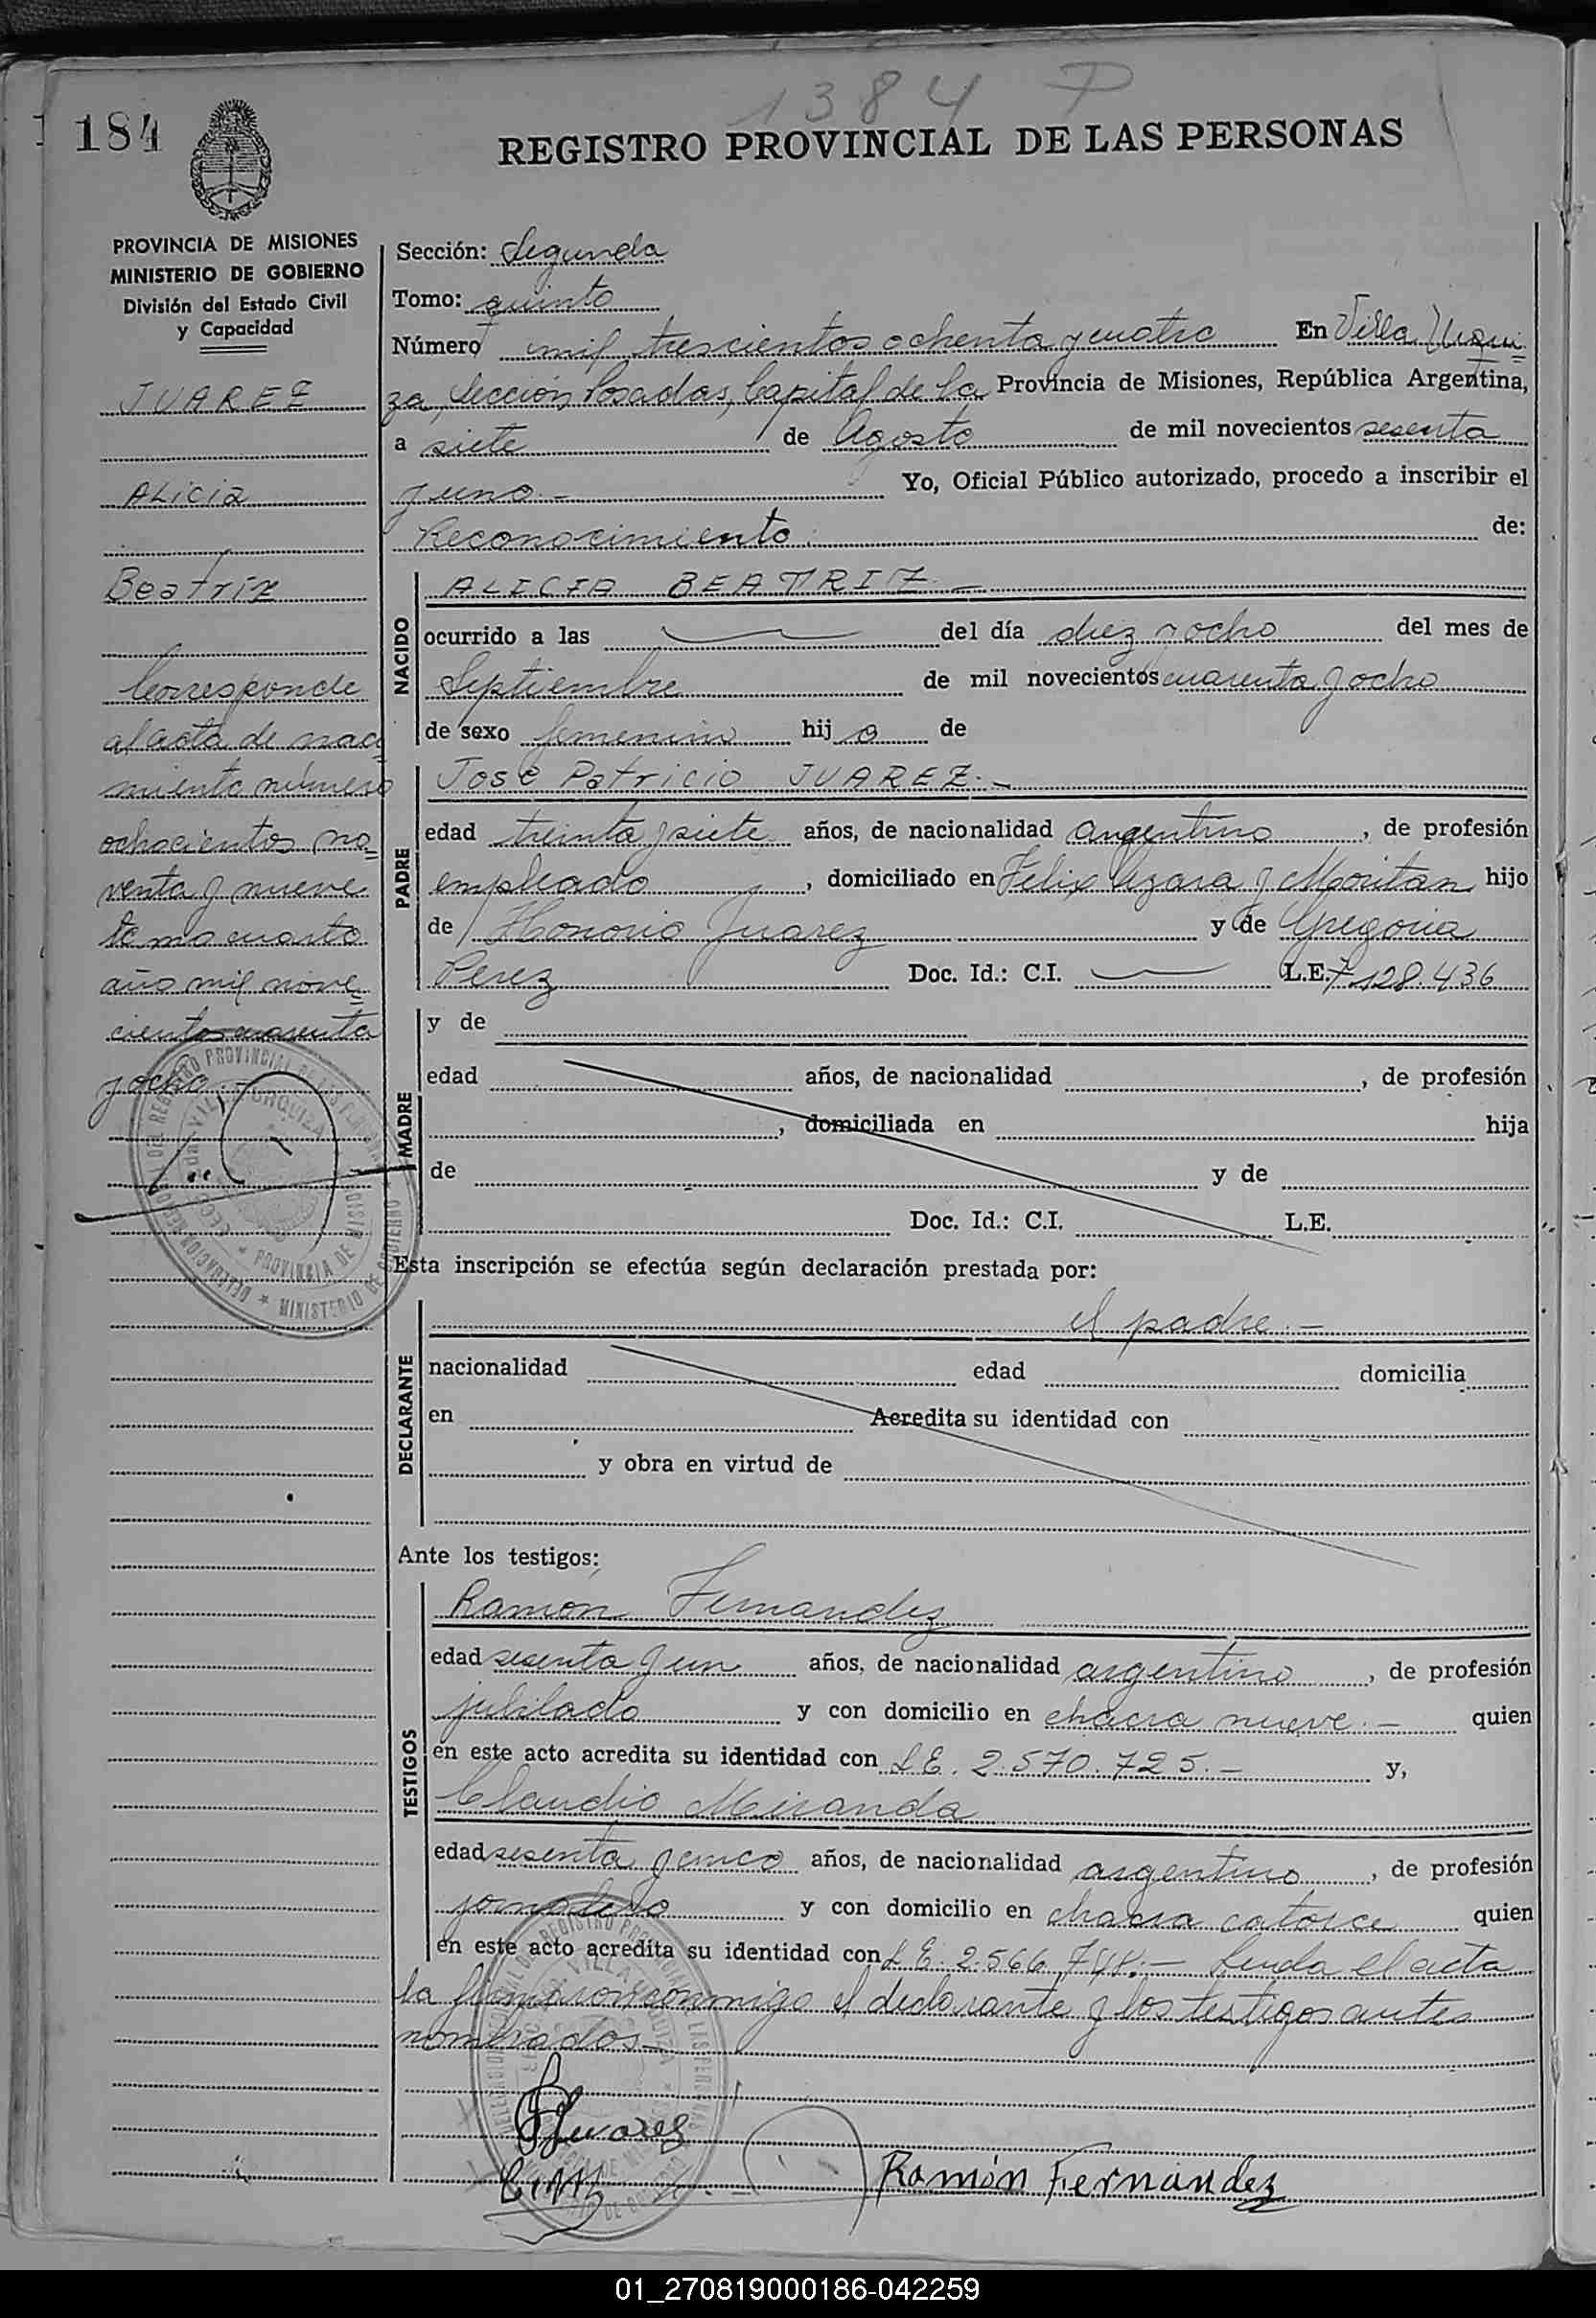 1384 P
184
REGISTRO PROVINCIAL DE LAS PERSONAS
PROVINCIA DE MISIONES
MINISTERIO DE GOBIERNO
División del Estado Civil
y Capacidad
JUAREZ
ALicia
Beatriz
Corresponde
al acta de naci
miento número
ochocientos no=
venta y nueve
tomo cuarto
año mil nove=
cientos cuarenta
y ocho.-
Sección: Segunda
Tomo: quinto
Número mil trescientos ochenta y cuatro En Villa Urqui=
za, Sección Posadas, Capital de la Provincia de Misiones, República Argentina,
a siete de Agosto de mil novecientos sesenta
y uno.- Yo, Oficial Público autorizado, procedo a inscribir el
Reconocimiento de:
NACIDO
ALICIA BEATRIZ.-
ocurrido a las del día diez y ocho del mes de
Septiembre de mil novecientos cuarenta y ocho
de sexo femenino hij a de
PADRE
José Patricio JUAREZ.-
edad treinta y siete años, de nacionalidad argentino, de profesión
empleado, domiciliado en Felix Azara y Moritan hijo
de Honorio Juarez y de Gregoria
Perez Doc. Id.: C.I. L.E. 7.128.436
MADRE
y de
edad años, de nacionalidad , de profesión
, domiciliada en hija
de y de
Doc. Id.: C.I. L.E.
Esta inscripción se efectúa según declaración prestada por:
DECLARANTE
el padre.-
nacionalidad edad domicilia
en Acredita su identidad con
y obra en virtud de
Ante los testigos:
TESTIGOS
Ramón Fernandez
edad sesenta y un años, de nacionalidad argentino, de profesión
jubilado y con domicilio en chacra nueve.- quien
en este acto acredita su identidad con L.E. 2.570.725.- y,
Claudio Miranda
edad sesenta y cinco años, de nacionalidad argentino, de profesión
jornalero y con domicilio en chacra catorce quien
en este acto acredita su identidad con L.E. 2.566.748.- Leída el acta
la firmaron conmigo el declarante y los testigos antes
nombrados.-
Juarez
Ramón Fernández
01_270819000186-042259